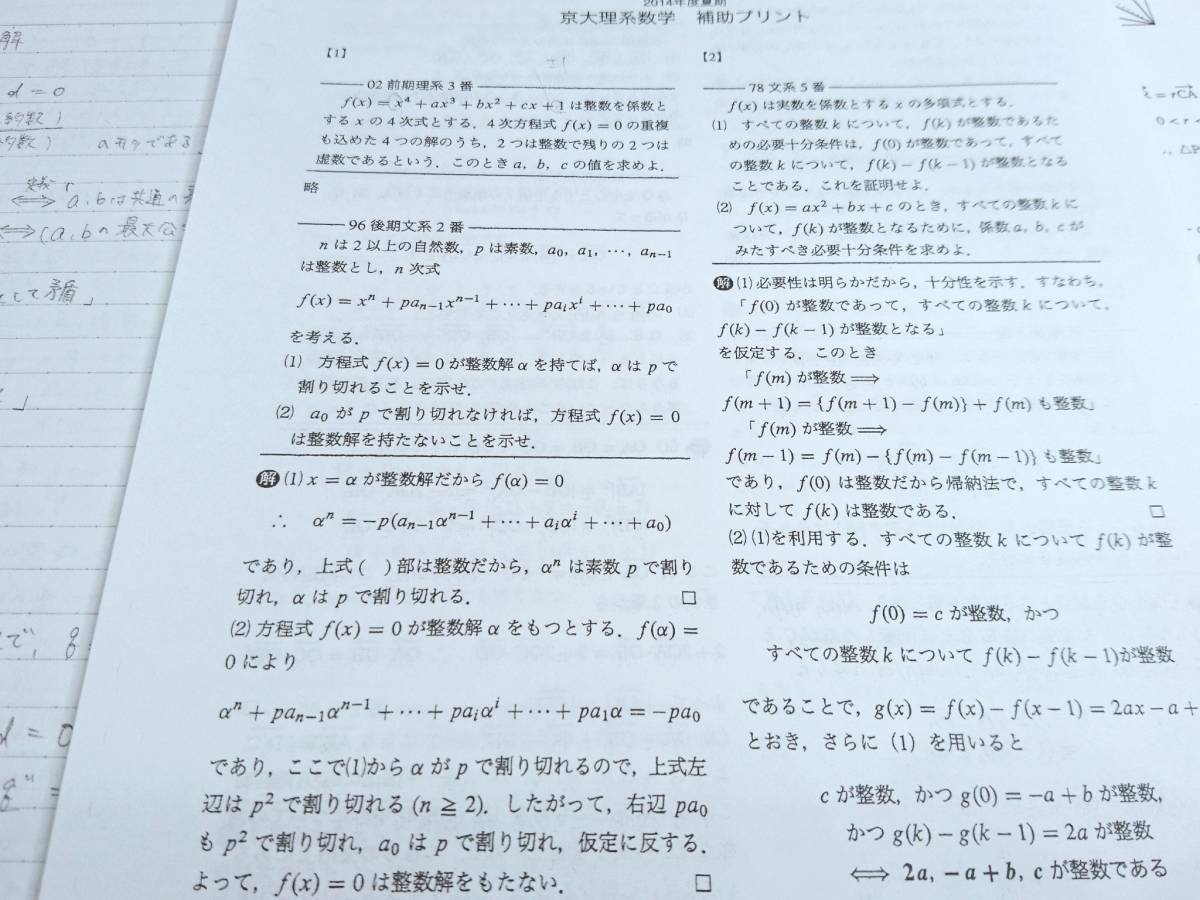 2014年度夏期
京大理系数学 補助プリント
【1】
±1
02 前期理系 3 番
f(x) = x⁴ + ax³ + bx² + cx + 1 は整数を係数と
する x の 4 次式とする．4 次方程式 f(x) = 0 の重複
も込めた 4 つの解のうち，2 つは整数で残りの 2 つは
虚数であるという．このとき a，b，c の値を求めよ．
略
96 後期文系 2 番
n は 2 以上の自然数，p は素数，a₀，a₁，⋯，aₙ₋₁
は整数とし，n 次式
f(x) = xⁿ + paₙ₋₁xⁿ⁻¹ + ⋯ + paᵢxⁱ + ⋯ + pa₀
を考える．
(1) 方程式 f(x) = 0 が整数解 α を持てば，α は p で
割り切れることを示せ．
(2) a₀ が p で割り切れなければ，方程式 f(x) = 0
は整数解を持たないことを示せ．
解 (1) x = α が整数解だから f(α) = 0
∴ αⁿ = −p(aₙ₋₁αⁿ⁻¹ + ⋯ + aᵢαⁱ + ⋯ + a₀)
であり，上式 ( ) 部は整数だから，αⁿ は素数 p で割り
切れ，α は p で割り切れる． □
(2) 方程式 f(x) = 0 が整数解 α をもつとする．f(α) =
0 により
αⁿ + paₙ₋₁αⁿ⁻¹ + ⋯ + paᵢαⁱ + ⋯ + pa₁α = −pa₀
であり，ここで(1)から α が p で割り切れるので，上式左
辺は p² で割り切れる (n ≧ 2)．したがって，右辺 pa₀
も p² で割り切れ，a₀ は p で割り切れ，仮定に反する．
よって，f(x) = 0 は整数解をもたない． □
【2】
78 文系 5 番
f(x) は実数を係数とする x の多項式とする．
(1) すべての整数 k について，f(k) が整数であるた
めの必要十分条件は，f(0) が整数であって，すべて
の整数 k について，f(k) − f(k − 1) が整数となる
ことである．これを証明せよ．
(2) f(x) = ax² + bx + c のとき，すべての整数 k に
ついて，f(k) が整数となるために，係数 a，b，c が
みたすべき必要十分条件を求めよ．
解 (1) 必要性は明らかだから，十分性を示す．すなわち，
「f(0) が整数であって，すべての整数 k について，
f(k) − f(k − 1) が整数となる」
を仮定する．このとき
「f(m) が整数 ⟹
f(m + 1) = {f(m + 1) − f(m)} + f(m) も整数」
「f(m) が整数 ⟹
f(m − 1) = f(m) − {f(m) − f(m − 1)} も整数」
であり，f(0) は整数だから帰納法で，すべての整数 k
に対して f(k) は整数である． □
(2) (1)を利用する．すべての整数 k について f(k) が整
数であるための条件は
f(0) = c が整数，かつ
すべての整数 k について f(k) − f(k − 1)が整数
であることで，g(x) = f(x) − f(x − 1) = 2ax − a +
とおき，さらに (1) を用いると
c が整数，かつ g(0) = −a + b が整数，
かつ g(k) − g(k − 1) = 2a が整数
⟺ 2a, −a + b, c が整数である
解
d = 0
約数)
である
定義
⟺ a, bは共通の
⟺ (a, bの最大公
として矛盾」
」
で, g
d = 0
0 < r <